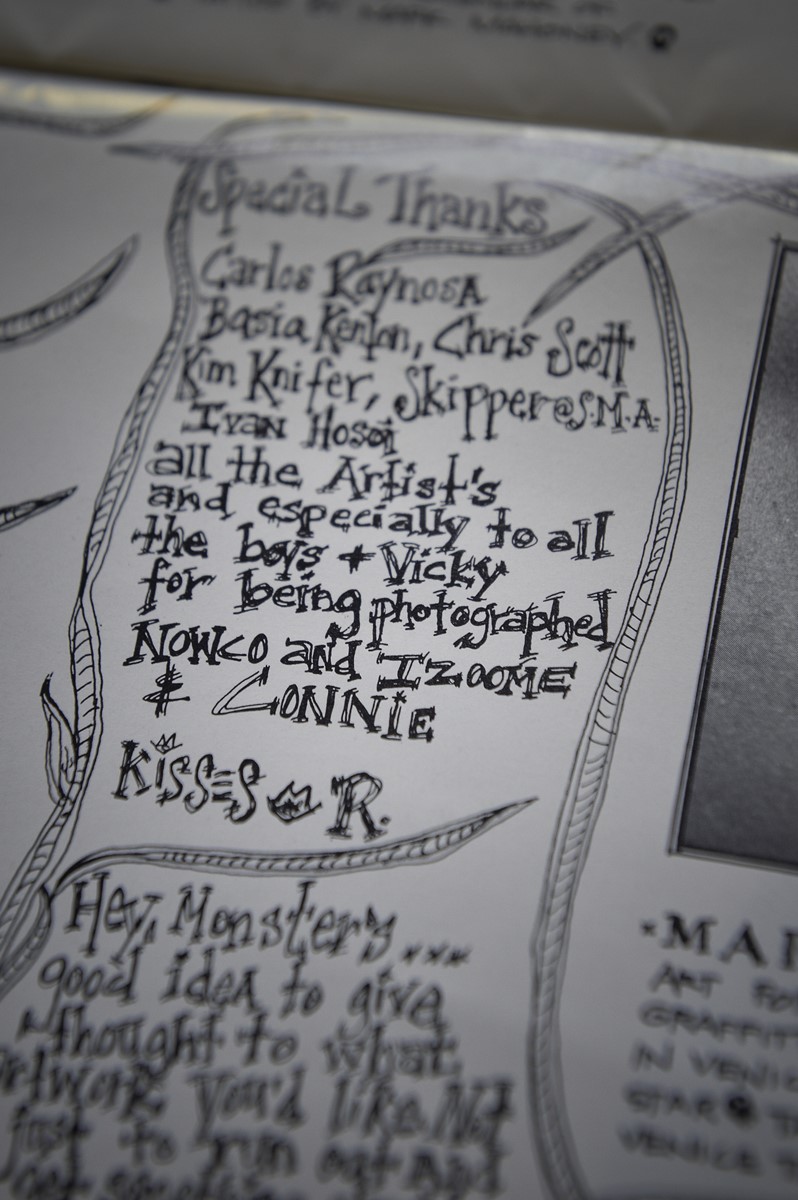 Special Thanks
Carlos Raynosa
Basia Kenton, Chris Scott
Kim Knifer, Skipper @ S.M.A.
Ivan Hosoi
all the Artist's
and especially to all
the boys + Vicky
for being photographed
NOWCO and IZOOME
& CONNiE
KiSSES R.
Hey, Monsters...
good idea to give
thought to what
artwork you'd like. Not
just to run out and
MAR
ART FO
GRAFFITI
IN VENIC
STAR
VENICE